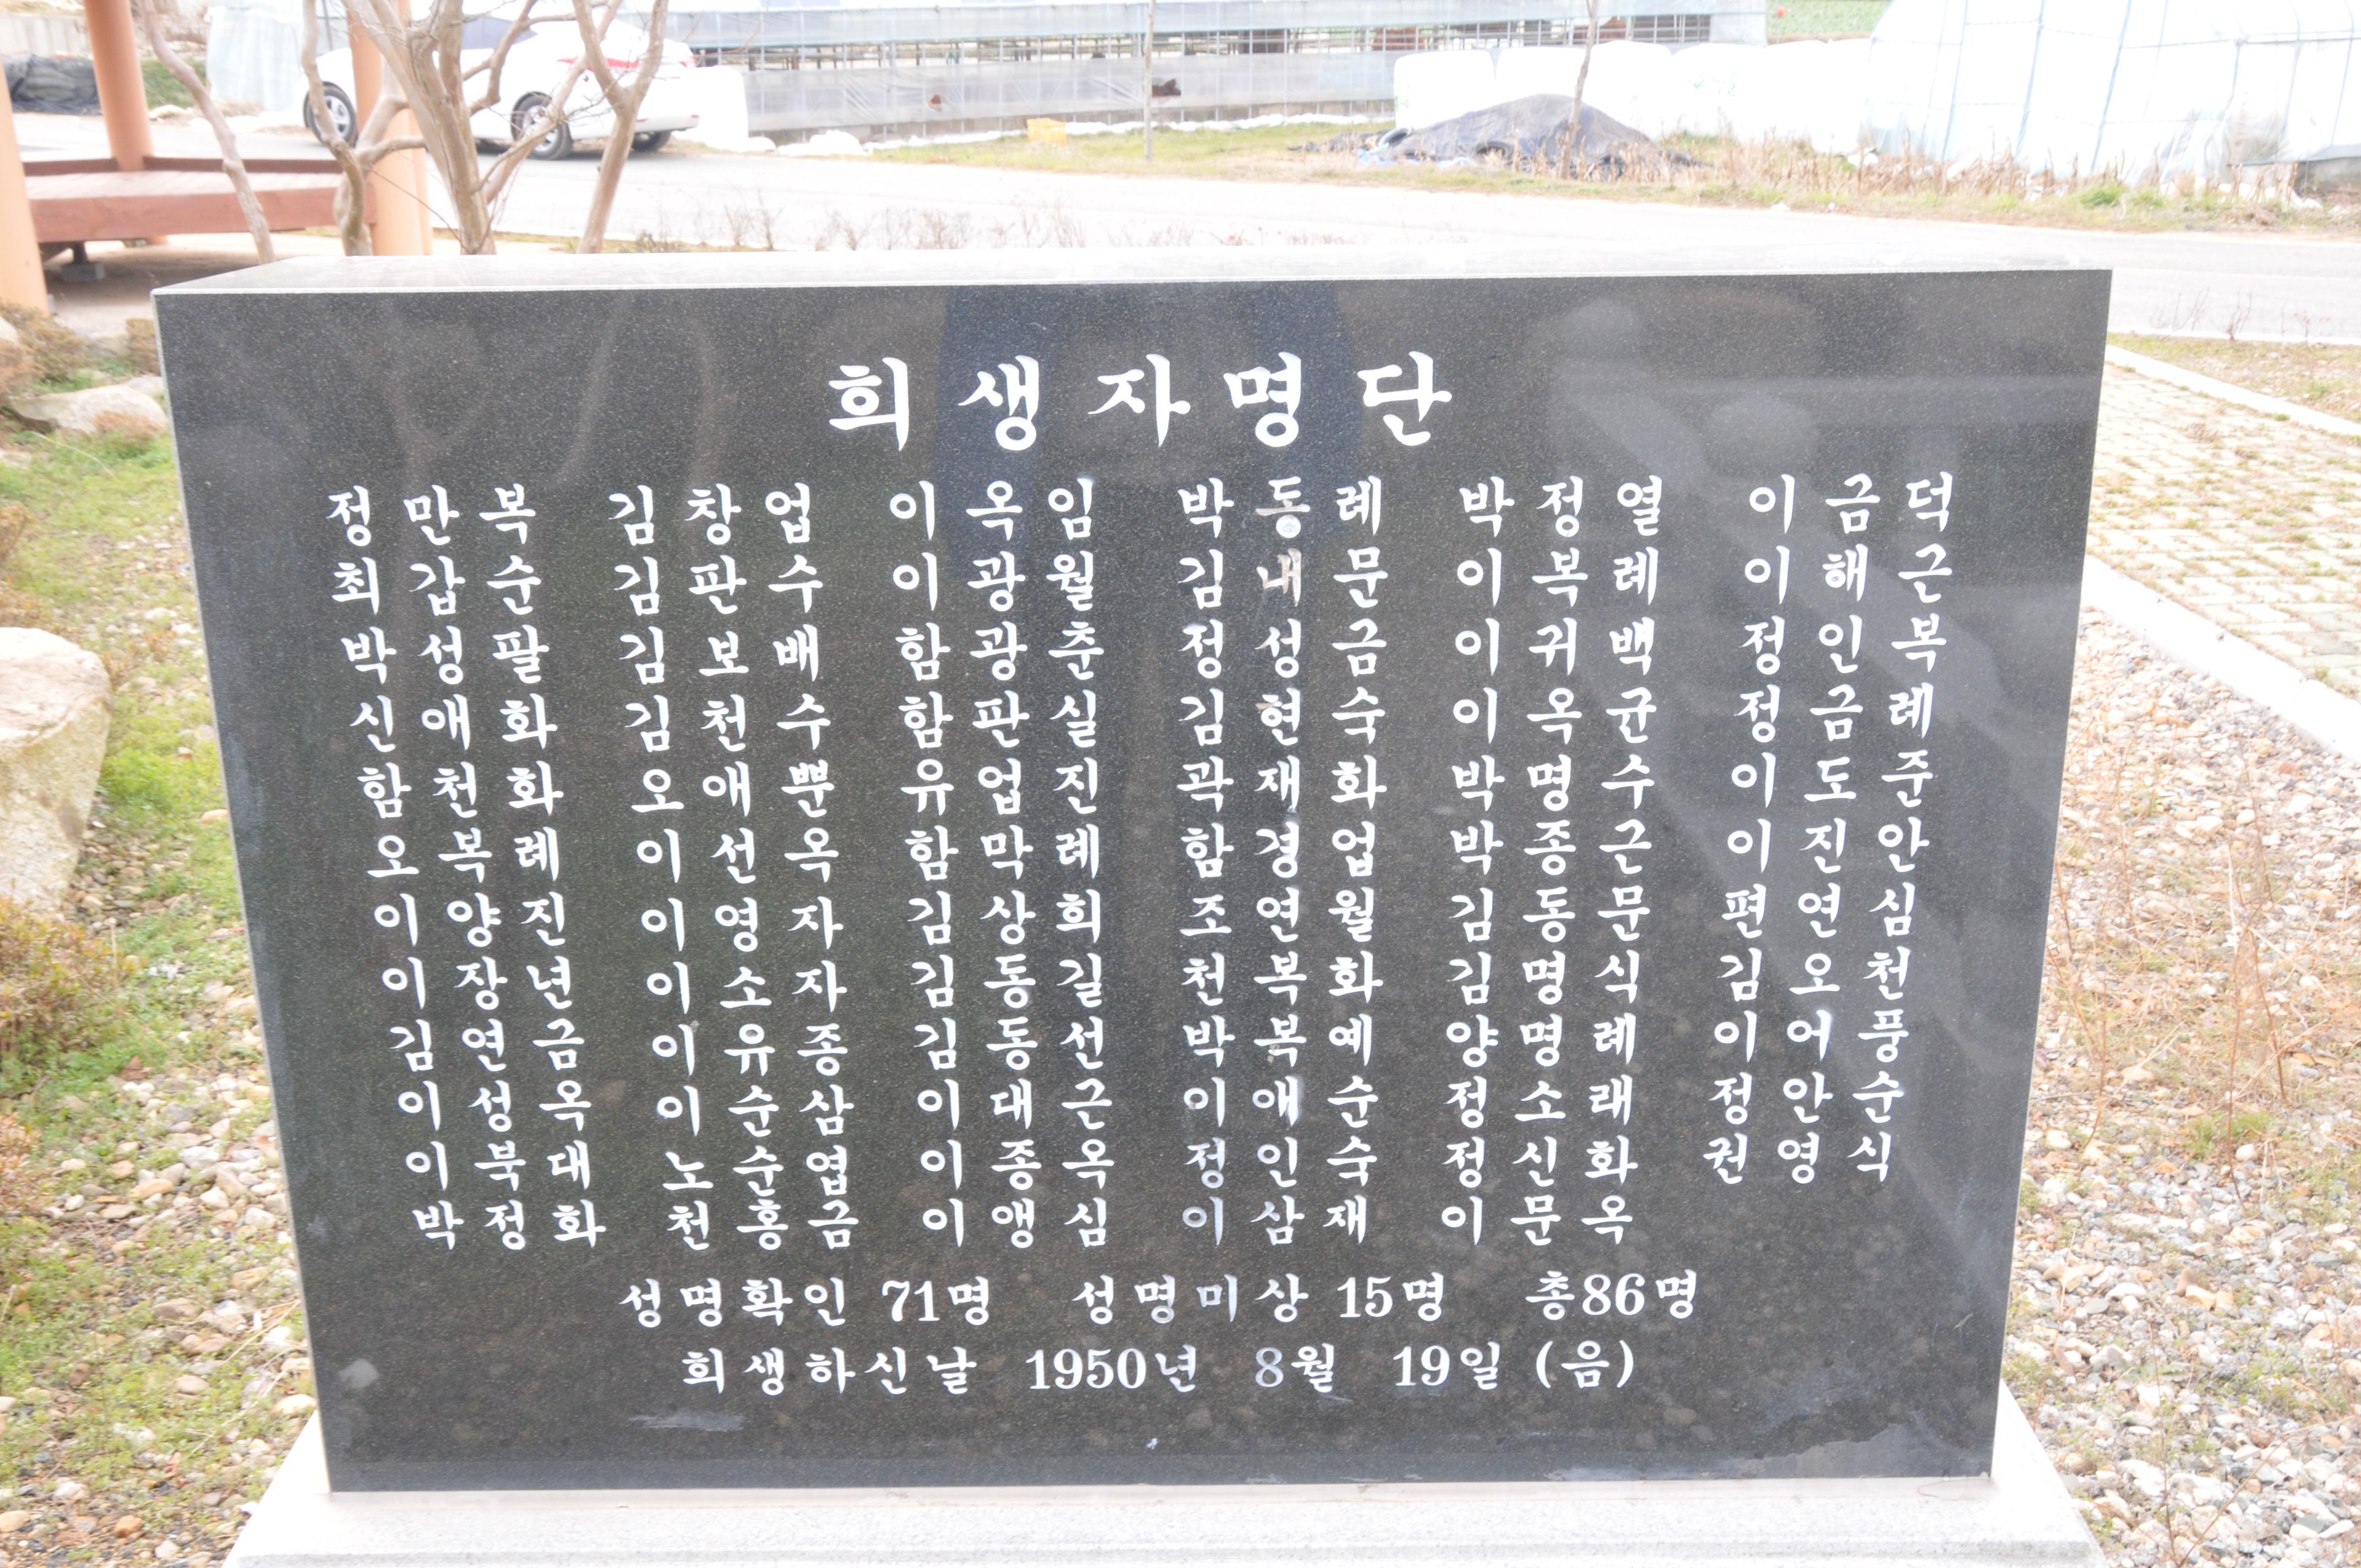 희생자명단
정만복 김창업 이옥임 박동례 박정열 이금덕
최갑순 김판수 이광월 김내문 이복례 이해근
박성팔 김보배 함광춘 정성금 이귀백 정인복
신애화 김천수 함판실 김현숙 이옥균 정금례
함천화 오애뿐 유업진 곽재화 박명수 이도준
오복례 이선옥 함막례 함경업 박종근 이진안
이양진 이영자 김상희 조연월 김동문 편연심
이장년 이소자 김동길 천복화 김명식 김오천
김연금 이유종 김동선 박복예 양명례 이어풍
이성옥 이순삼 이대근 이애순 정소래 정안순
이북대 노순엽 이종옥 정인숙 정신화 권영식
박정화 천홍금 이앵심 이삼재 이문옥
성명확인 71명 성명미상 15명 총86명
희생하신날 1950년 8월 19일 (음)